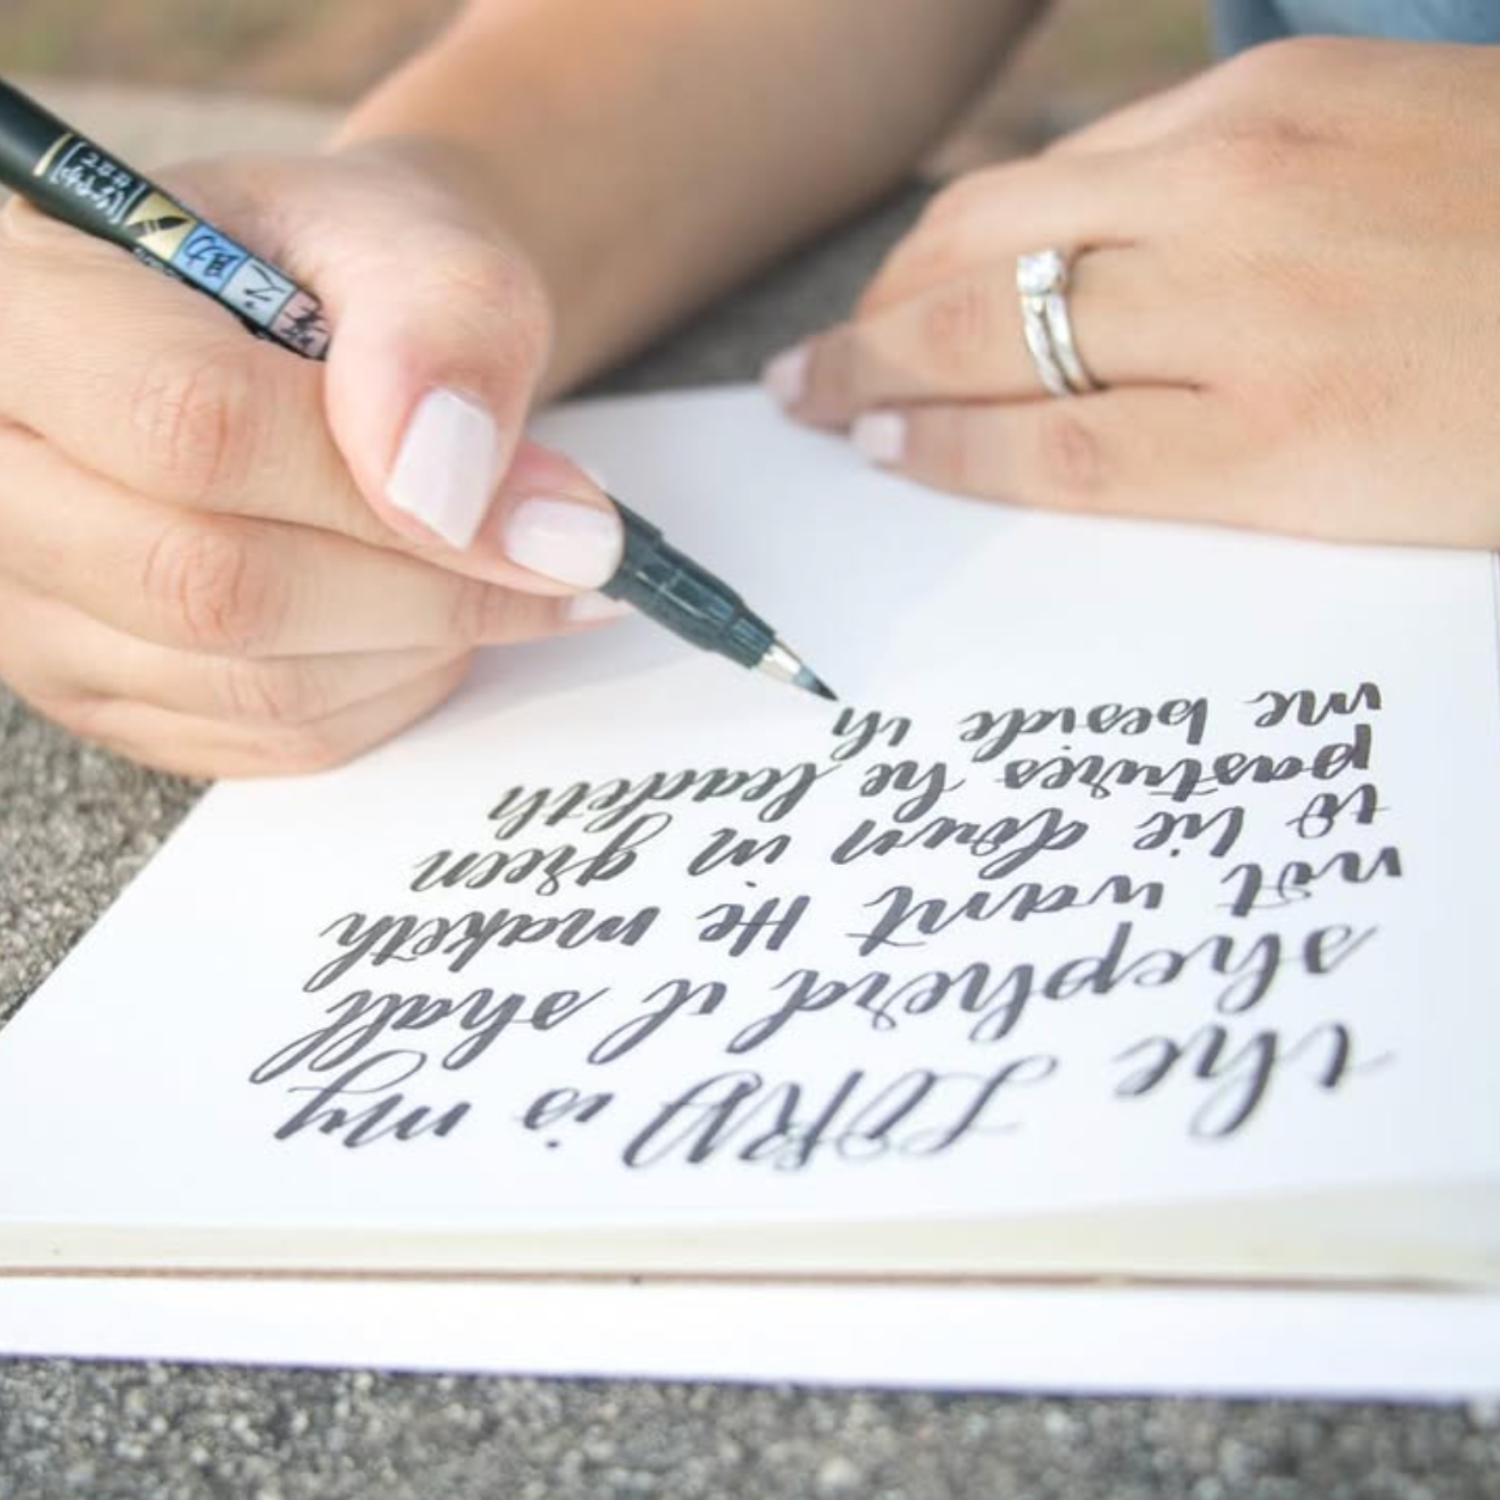 the LORD is my
shepherd I shall
not want He maketh
to lie down in green
pastures he leadeth
me beside th